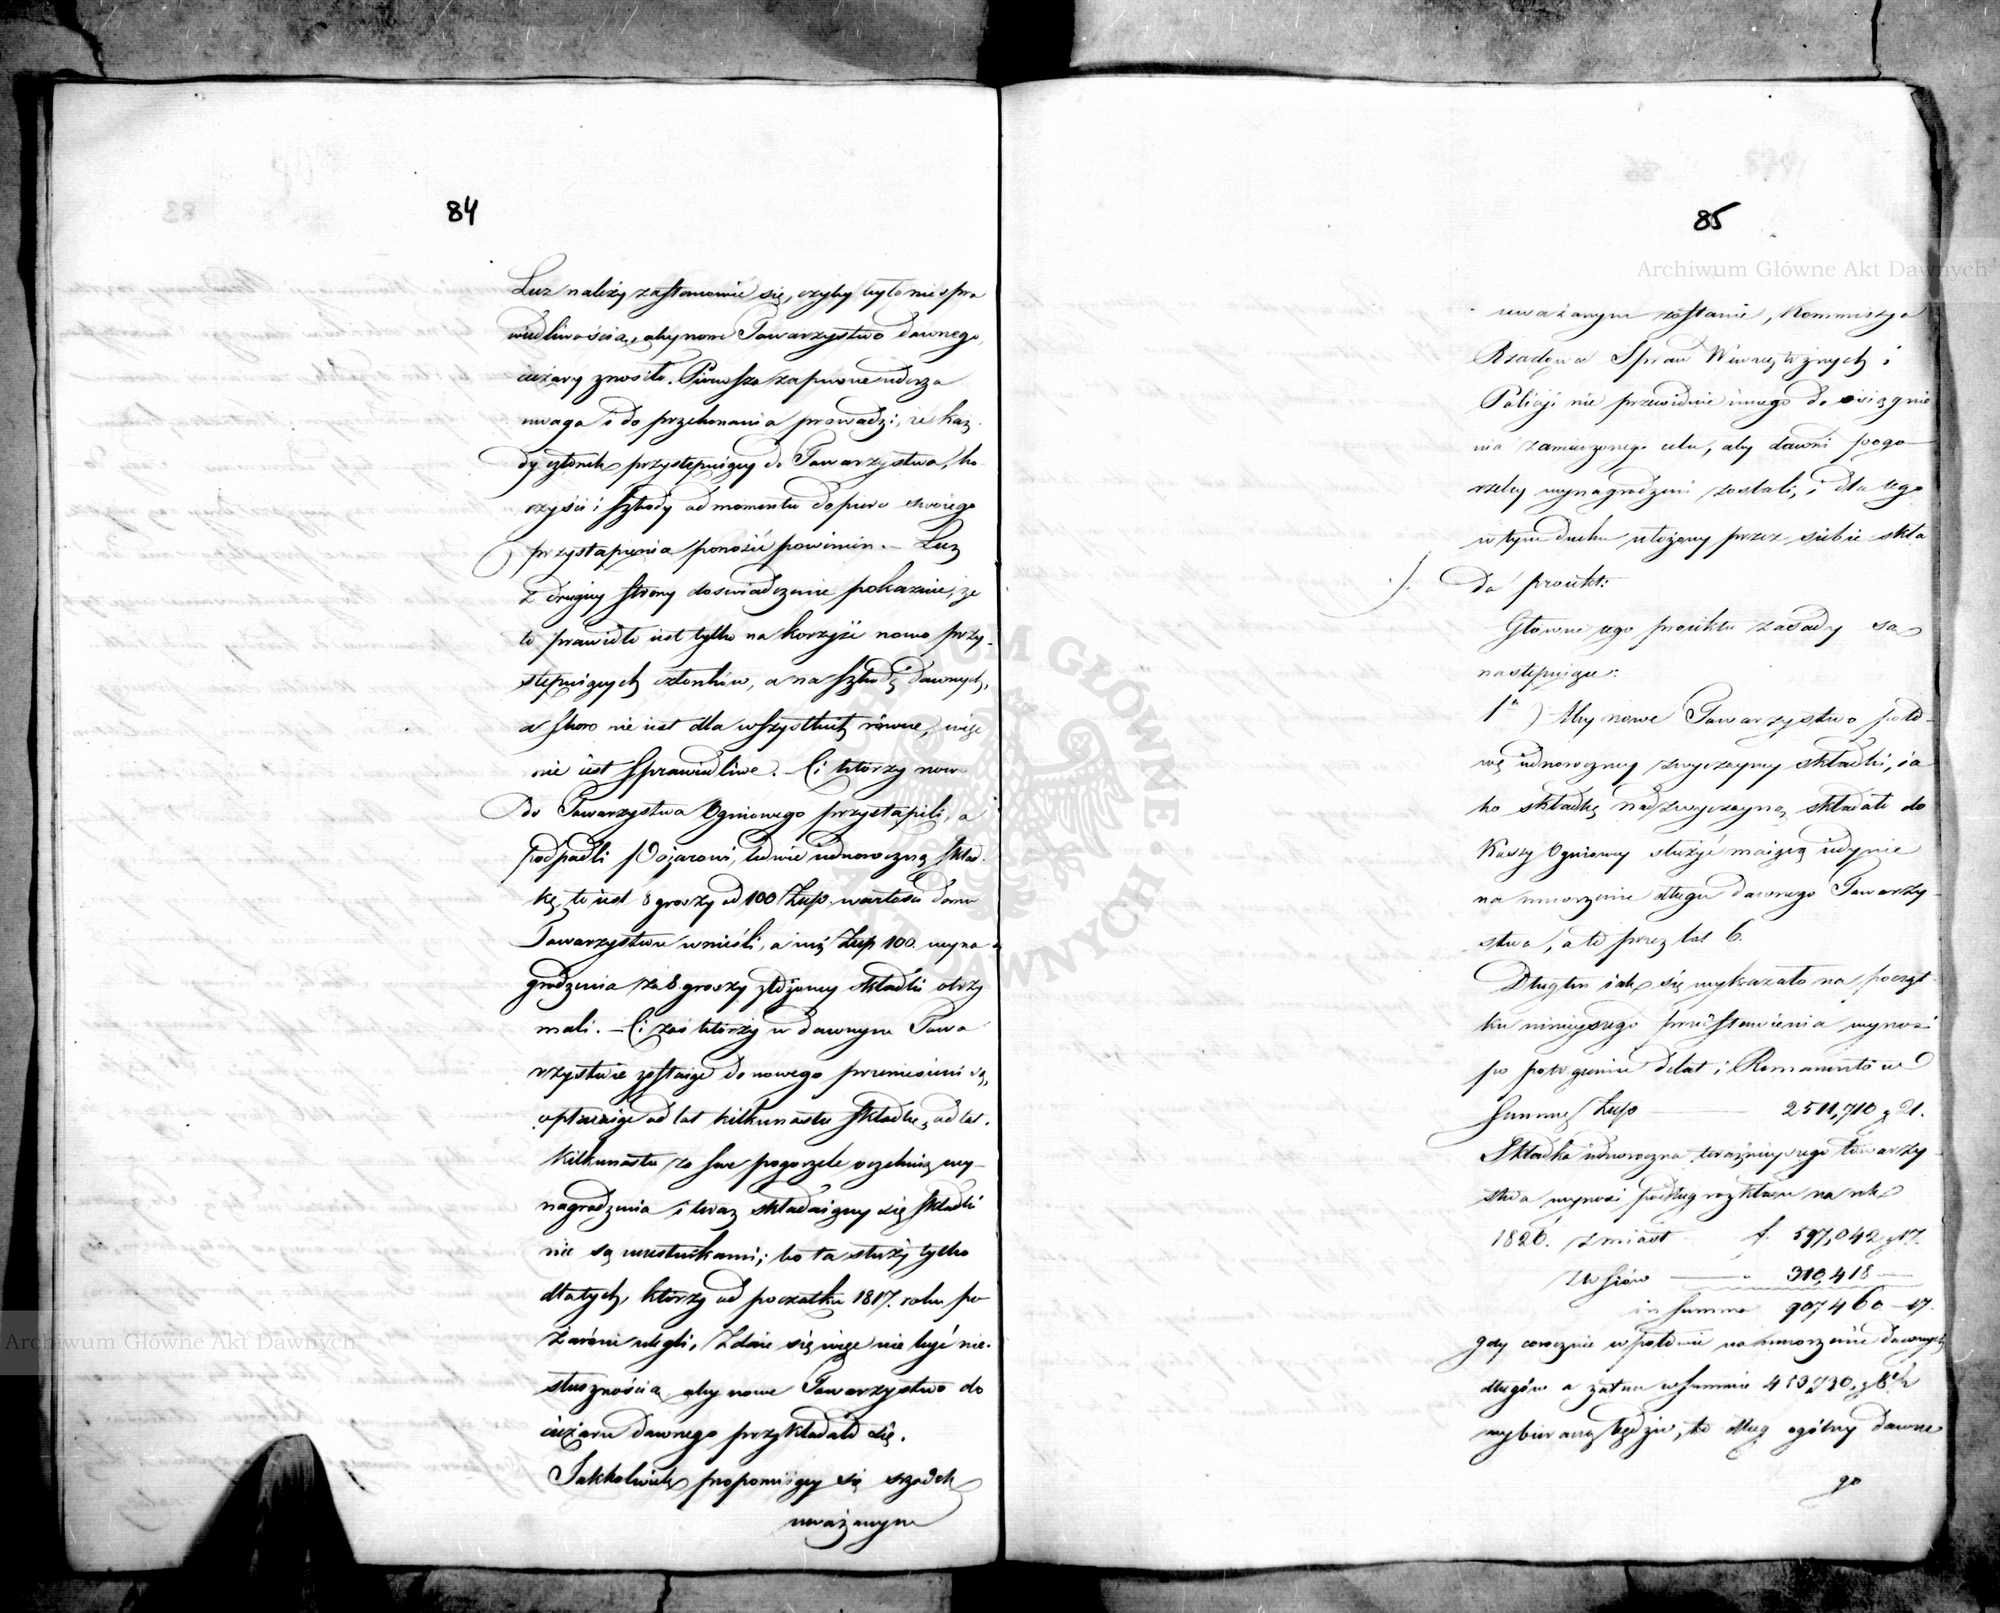 84
Lecz należy zastanowić się, czyby było niespra
wiedliwością, aby nowe Towarzystwo dawnego
ciężary znosiło. Pierwsza zapewne uderza
uwaga i do przekonania prowadzi, że każ-
dy członek przystępuiący do Towarzystwa, ko-
rzyści i szkody od momentu dopiero swoiego
przystąpienia ponosić powinien. – Lecz
z drugiey strony doswiadczenie pokazuie, że
to prawidło iest tylko na korzyść nowo przy-
stępuiących członków, a na szkodę dawnych,
a skoro nie iest dla wszystkich równe, więc
nie iest sprawiedliwe. – Ci którzy nowo
do Towarzystwa Ogniowego przystąpili, a
podpadli Pożarowi, ledwie iednoroczną skład-
kę to iest 8 groszy od 100 Złp. wartości domu
Towarzystwu wnieśli, a iuż Złp 100. wyna
grodzenia za 8 groszy złożoney składki otrzy
mali. – Ci zaś którzy w dawnym Towa
rzystwie zostaiąc do nowego przeniesieni są,
opłacaiąc od lat kilkunastu składkę, od lat
kilkunastu za swe pogorzele oczekuią wy-
nagrodzenia i teraz składaiącey się składki
nie są uczestnikami; bo ta służy tylko
dla tych, którzy od początku 1817. roku po
żarowi ulegli, Zdaie się więc nie być nie-
słusznością aby nowe Towarzystwo do
ciężaru dawnego przykładało się.
Jakkolwiek proponuiący się szodek
uważanym
85
uważanym zostanie, Kommissya
Rządowa Spraw Wewnętrznych i
Policyi nie przewiduie innego do osiągnie
nia zamierzonego celu, aby dawni pogo-
rzelcy wynagrodzeni zostali, i dla tego
w tym duchu ułożony przez siebie skła
da proiekt:
Główne tego proiektu zasady są
następuiące:
1º) Aby nowe Towarzystwo poło-
wę iednoroczney zwyczayney składki, ia
ko składkę nadzwyczayną składało do
Kassy Ogniowey służyć maiącą iedynie
na umorzenie długu dawnego Towarzy-
stwa, a to przez lat 6.
Dług ten iak się wykazało na począt-
ku ninieyszego przedstawienia wynosi
po potrąceniu delat i Remanentów
Summę Złp 2511,710 g 21.
Składka iednoroczna teraźnieyszego towarzy-
stwa wynosi podług rozkładu na rok
1826. z miast f. 597,042 g 17.
z wsiów — " 310,418 —
in summa 907460 – 17.
gdy corocznie w połowie na umorzenie dawnych
długów a zatem w summie 453,730. g 8½
wybieraną będzie, to dług ogólny dawne
go
Archiwum Główne Akt Dawnych
Archiwum Główne Akt Dawnych